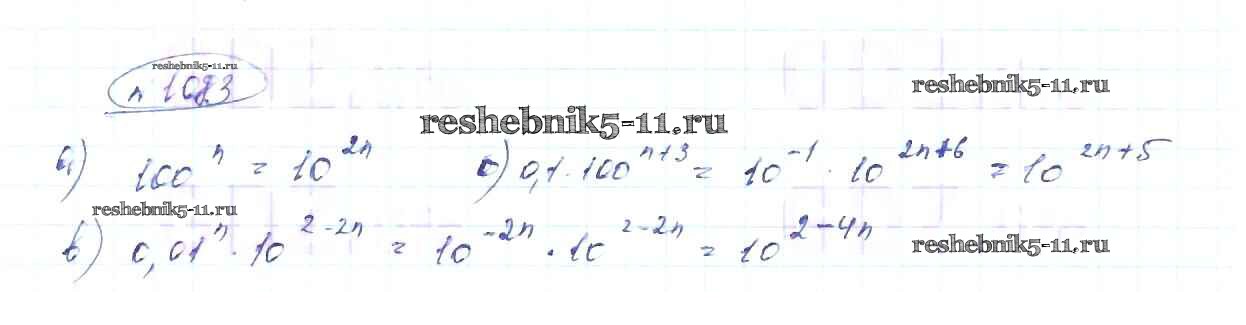 reshebnik5-11.ru
n 1083
reshebnik5-11.ru
reshebnik5-11.ru
а) 100^n = 10^{2n} б) 0,1·100^{n+3} = 10^{-1}·10^{2n+6} = 10^{2n+5}
reshebnik5-11.ru
в) 0,01^n·10^{2-2n} = 10^{-2n}·10^{2-2n} = 10^{2-4n}
reshebnik5-11.ru